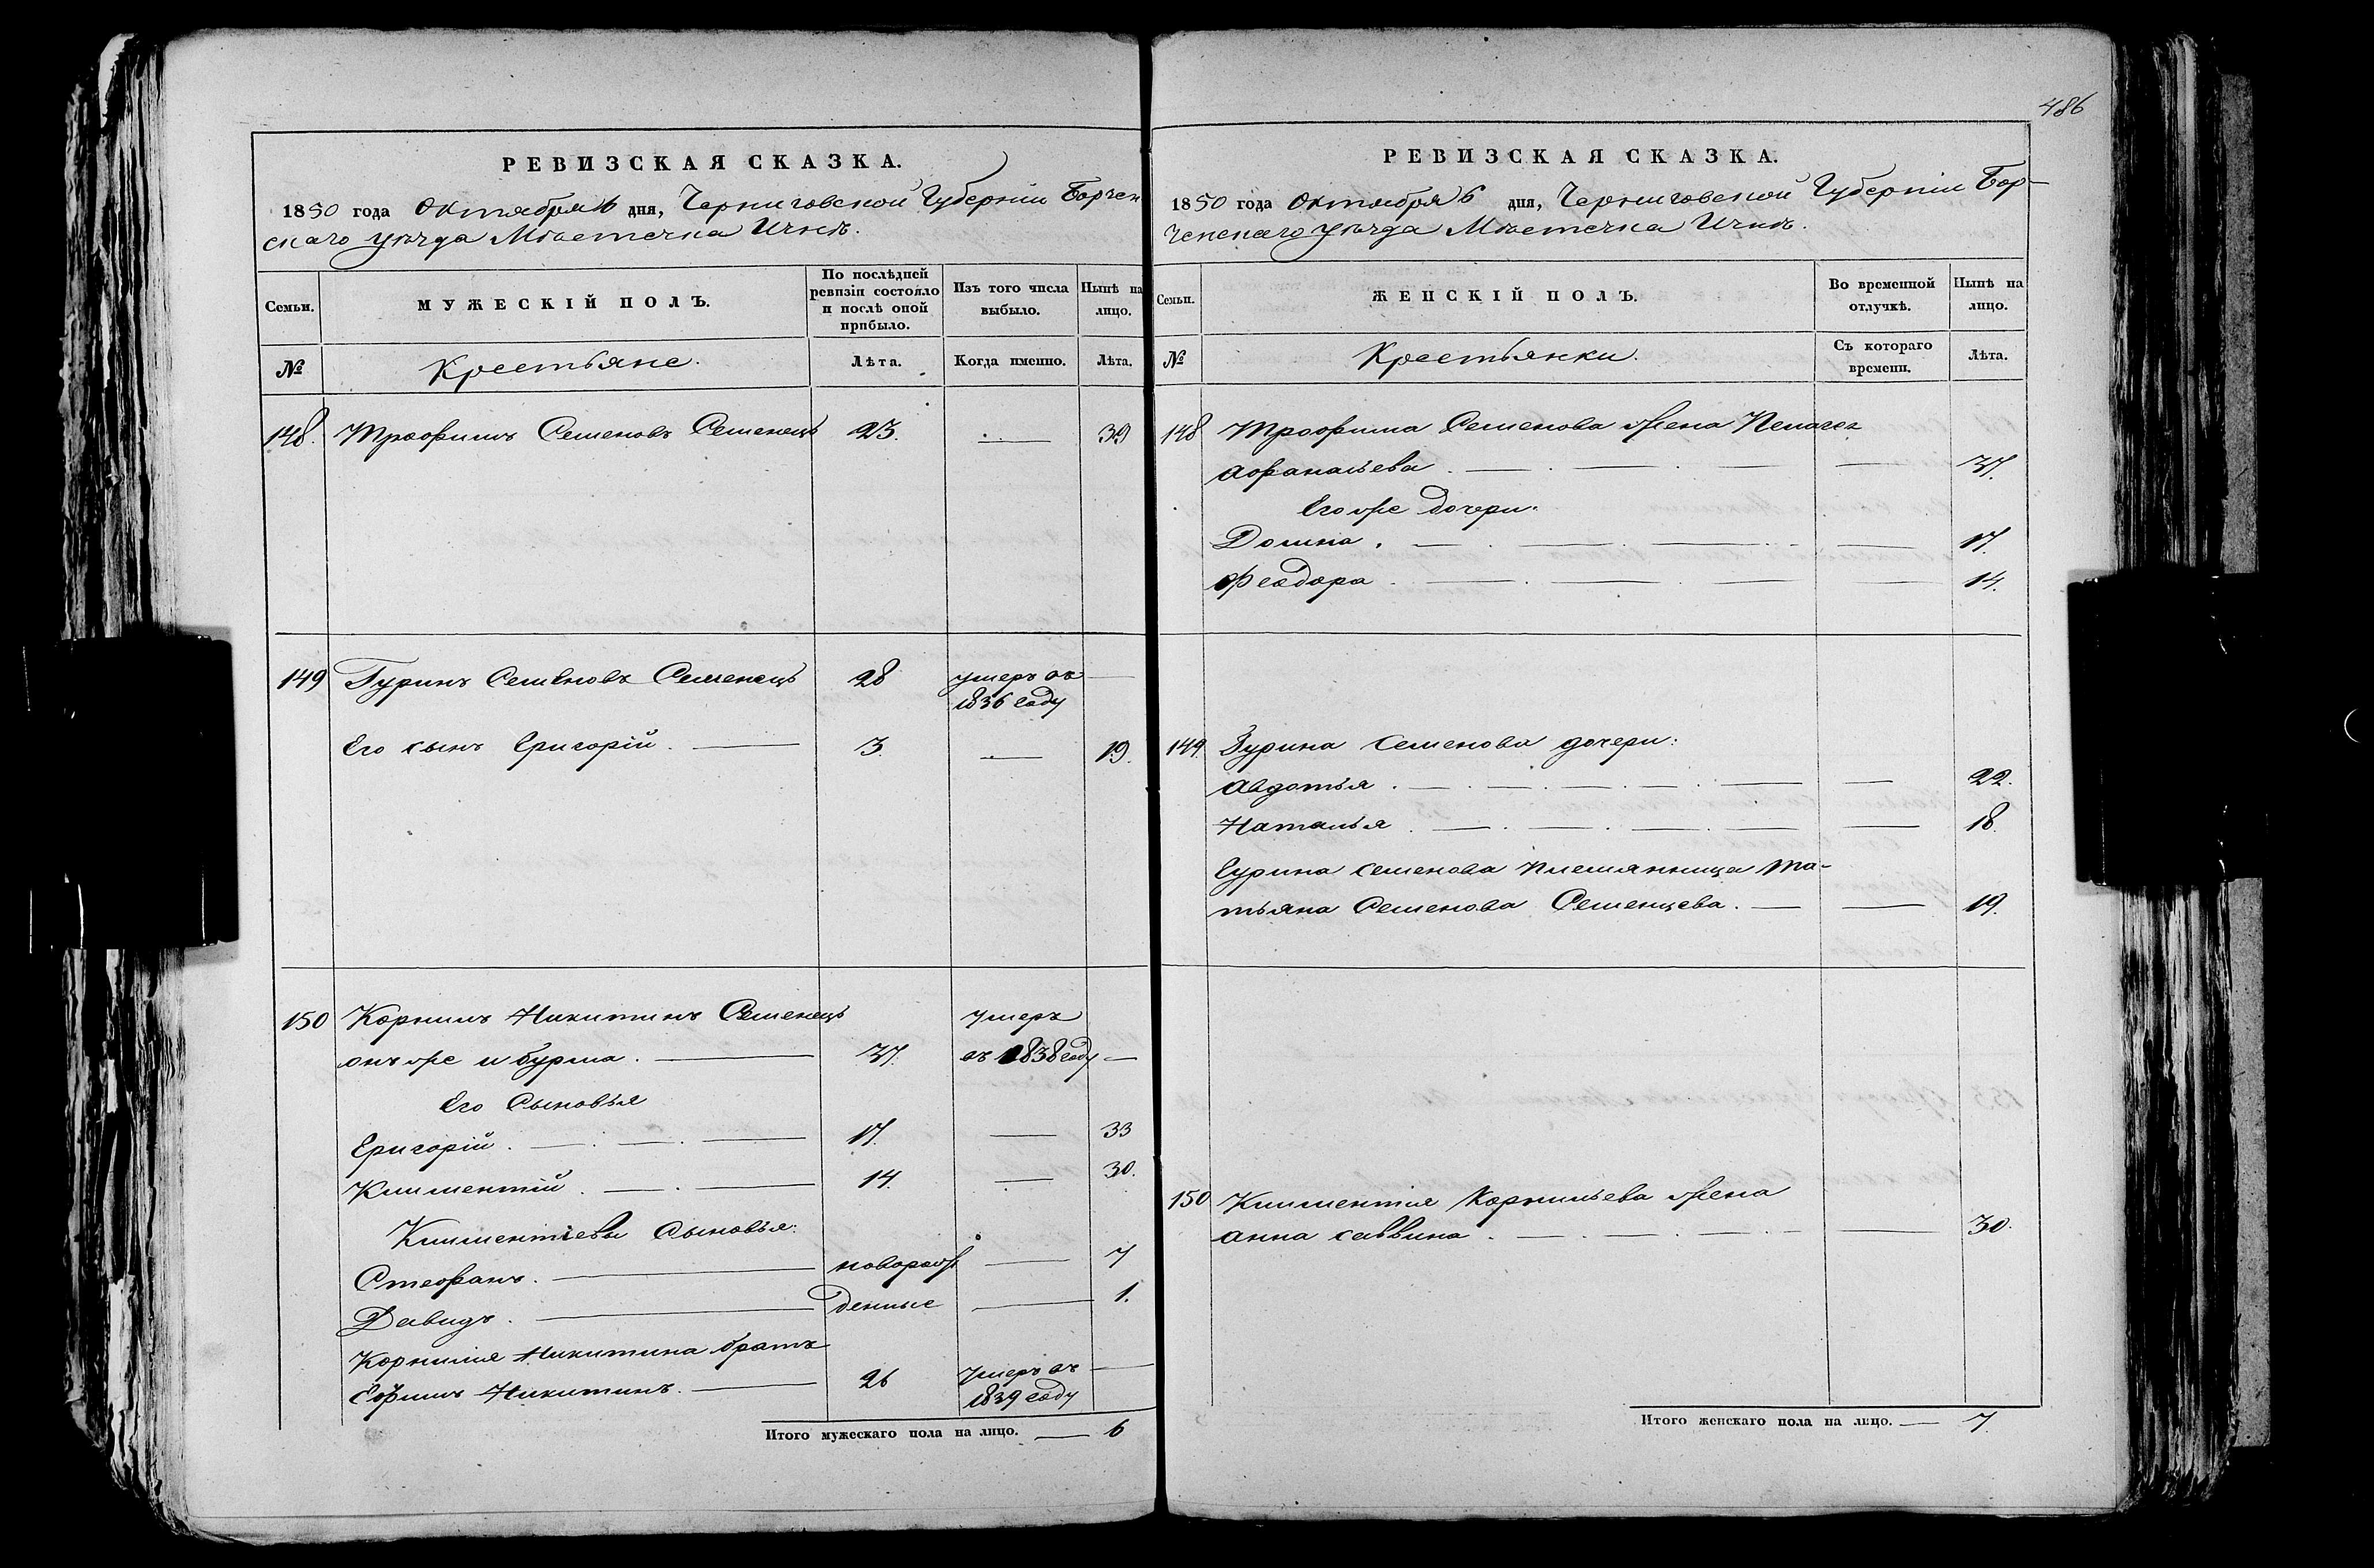 486
РЕВИЗСКАЯ СКАЗКА.
1850 года Октября 6 дня, Черниговской Губерніи Борзен
скаго уѣзда Мѣстечка Ични.
Семьи.
МУЖЕСКІЙ ПОЛЪ.
По послѣдней
ревизіи состояло
и послѣ оной
прибыло.
Изъ того числа
выбыло.
Нынѣ на
лицо.
№
Крестьяне.
Лѣта.
Когда именно.
Лѣта.
148. Трофимъ Семеновъ Семенецъ 23. — 39
149 Гуринъ Семеновъ Семенецъ 28 умеръ въ —
1836 году
Его сынъ Григорій. — 3. — 19.
150 Корнилъ Никитинъ Семенецъ умеръ
онъ же и бурма. — 37. въ 1838 году —
Его Сыновья
Григорій. — 17. — 33
Климентій. — 14. — 30.
Климентіевы Сыновья:
Стефанъ. — новорож — 7
Давидъ. — денные — 1.
Корнилія Никитина братъ
Ефимъ Никитинъ. — 26 умеръ въ —
1839 году
Итого мужескаго пола на лицо. — 6
РЕВИЗСКАЯ СКАЗКА.
1850 года Октября 6 дня, Черниговской Губерніи Бор-
зенскаго уѣзда Мѣстечка Ични.
Семьи.
ЖЕНСКІЙ ПОЛЪ.
Во временной
отлучкѣ.
Нынѣ на
лицо.
№
Крестьянки.
Съ котораго
времени.
Лѣта.
148 Трофима Семенова жена Пелагея
Афанасьева. — 37.
Его же дочери.
Домна. — 17.
Феодора. — 14.
149. Гурина Семенова дочери:
Авдотья. — 22.
Наталья. — 18.
Гурина Семенова племянница Та-
тьяна Семенова Семенцева. — 19.
150 Климентія Корнильева жена
Анна Саввина. — 30.
Итого женскаго пола на лицо. — 7.